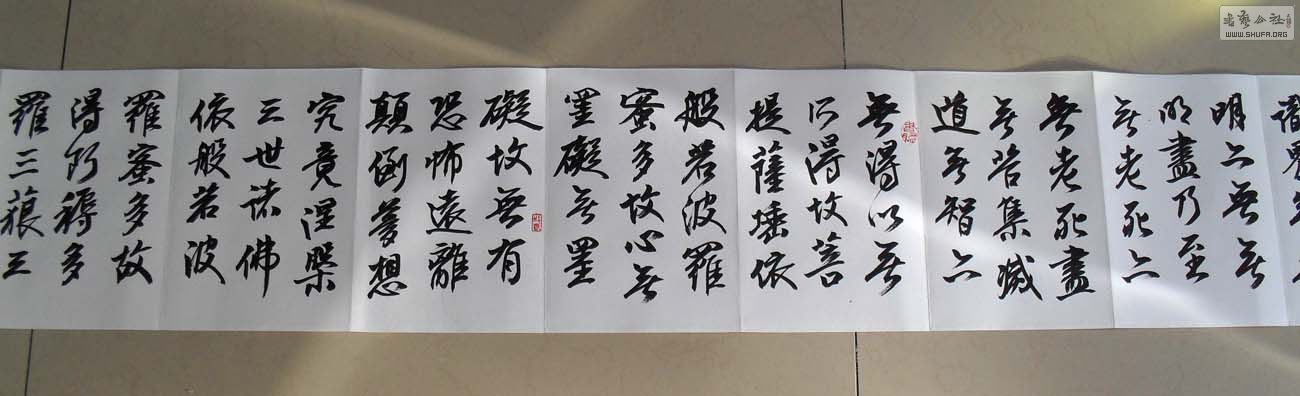 識界
明亦無無
明盡乃至
無老死亦
無老死盡
無苦集滅
道無智亦
無得以無
所得故菩
提薩埵依
般若波羅
蜜多故心無
罣礙無罣
礙故無有
恐怖遠離
顛倒夢想
究竟涅槃
三世諸佛
依般若波
羅蜜多故
得阿耨多
羅三藐三
書藝公社
WWW.SHUFA.ORG